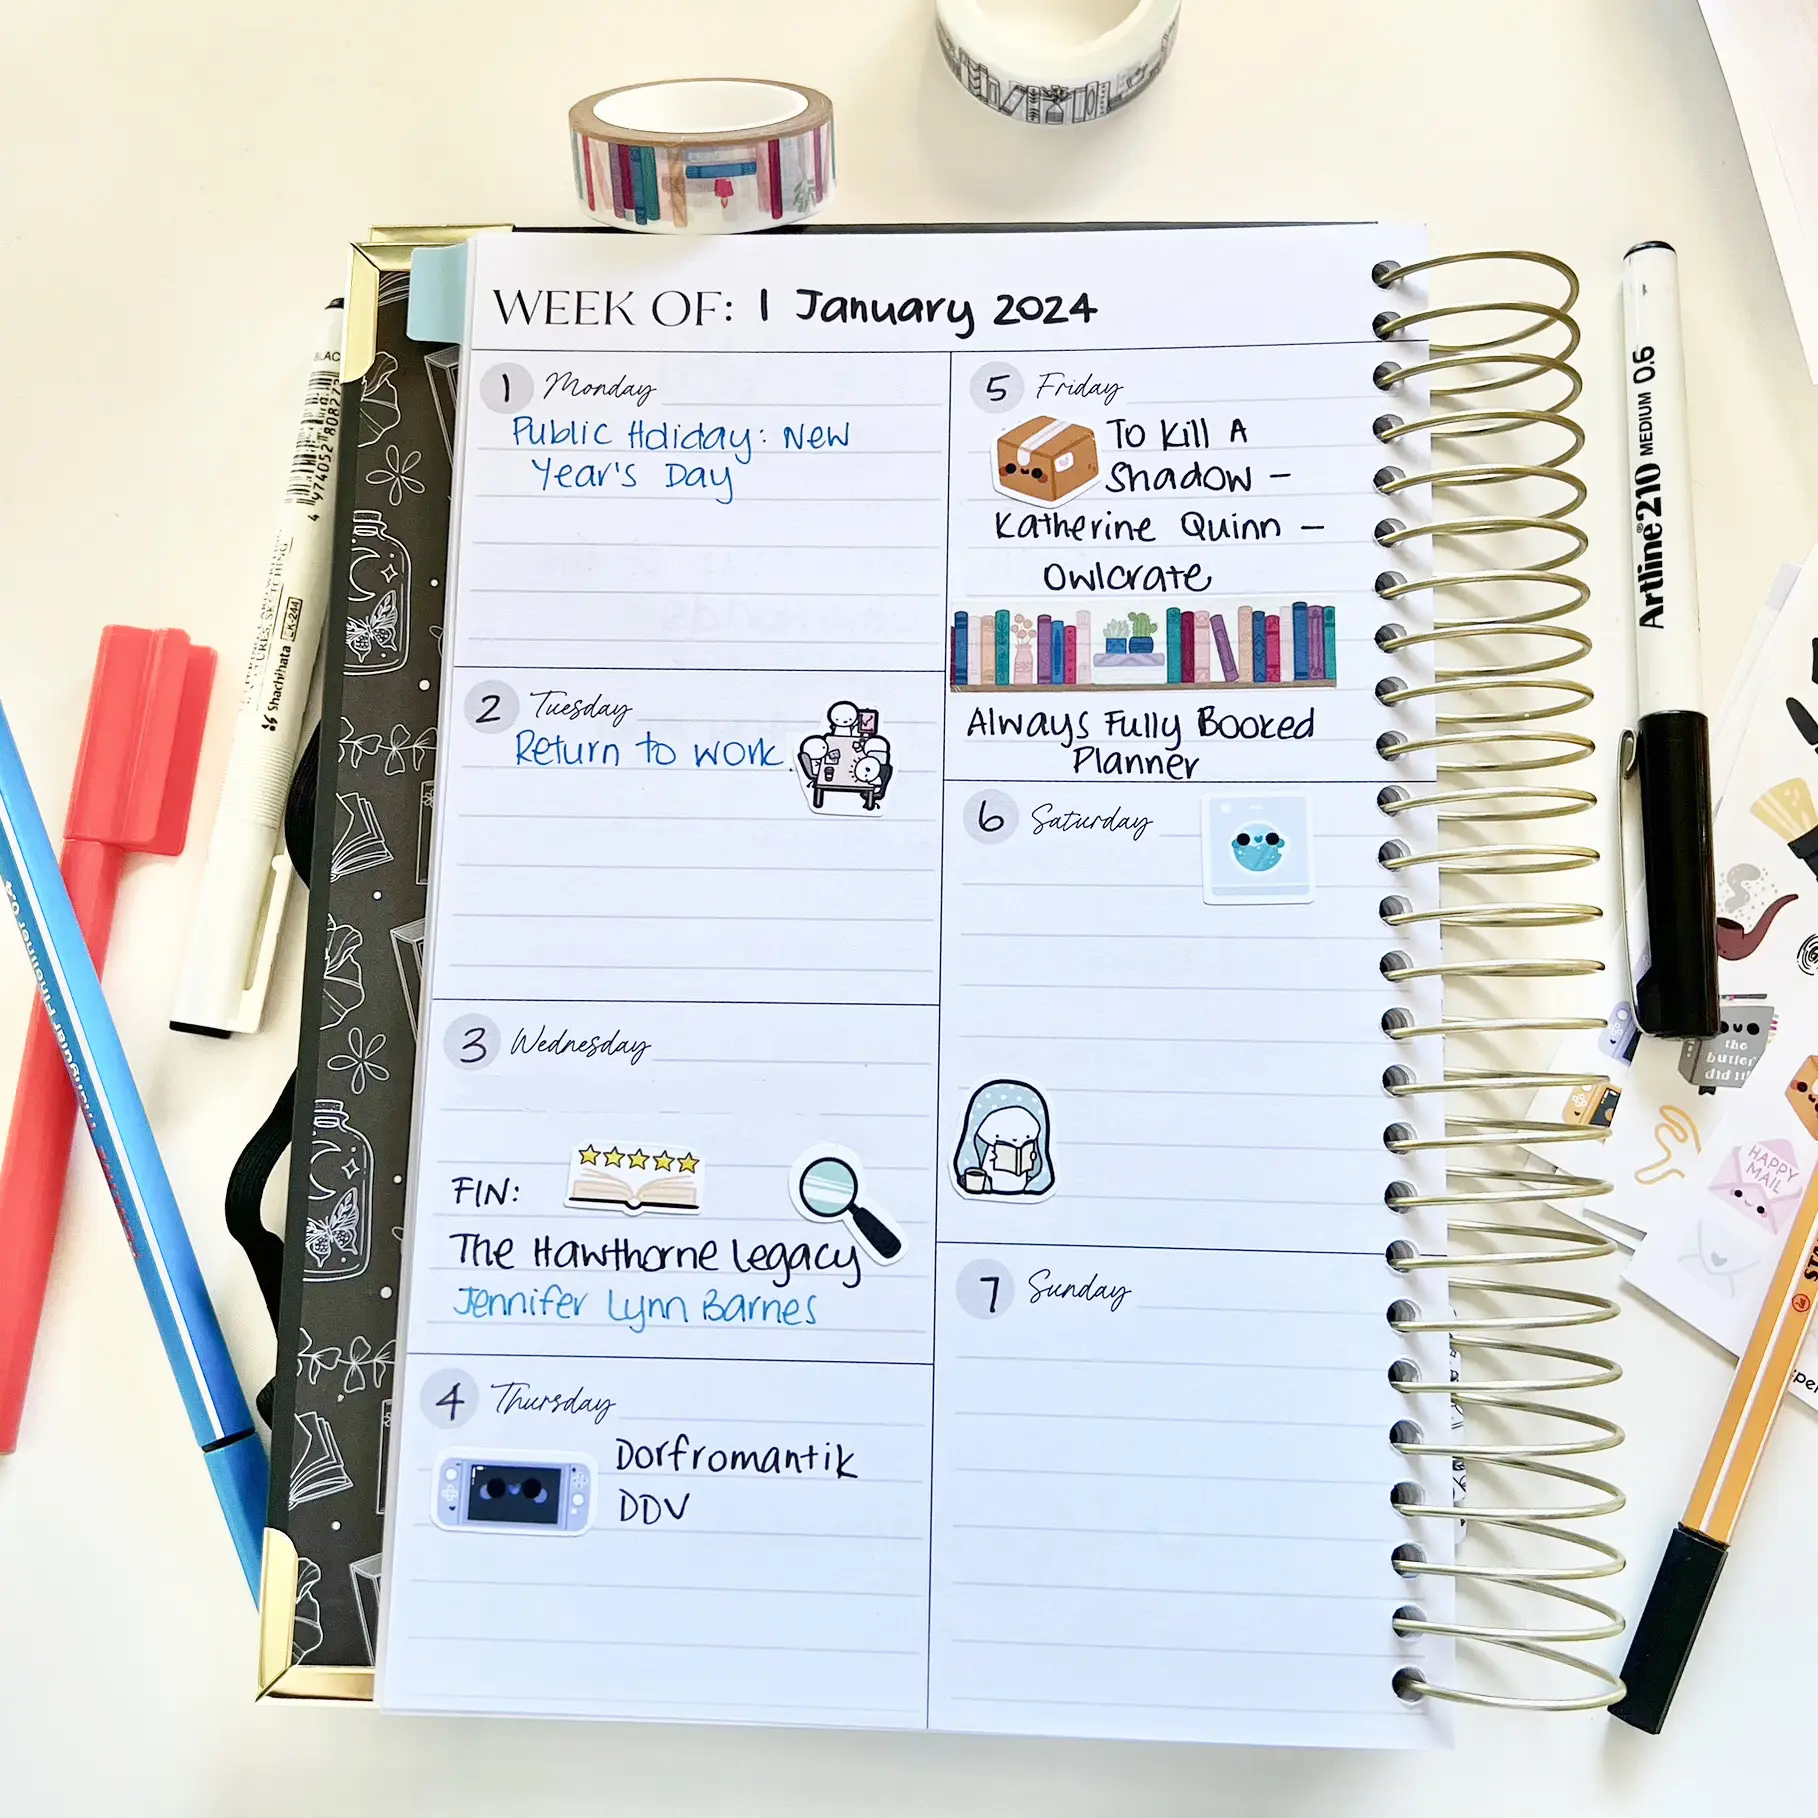 WEEK OF: 1 January 2024
1 Monday
Public Holiday: New
Year's Day
2 Tuesday
Return to work.
3 Wednesday
FIN:
The Hawthorne Legacy
Jennifer Lynn Barnes
4 Thursday
Dorfromantik
DDV
5 Friday
To Kill A
Shadow -
Katherine Quinn -
Owlcrate
Always Fully Booked
Planner
6 Saturday
7 Sunday
BLAC
4 974052 808272
Shachihata
K-244
Artline 210 MEDIUM 0.6
the
butler
did it
HAPPY
MAIL